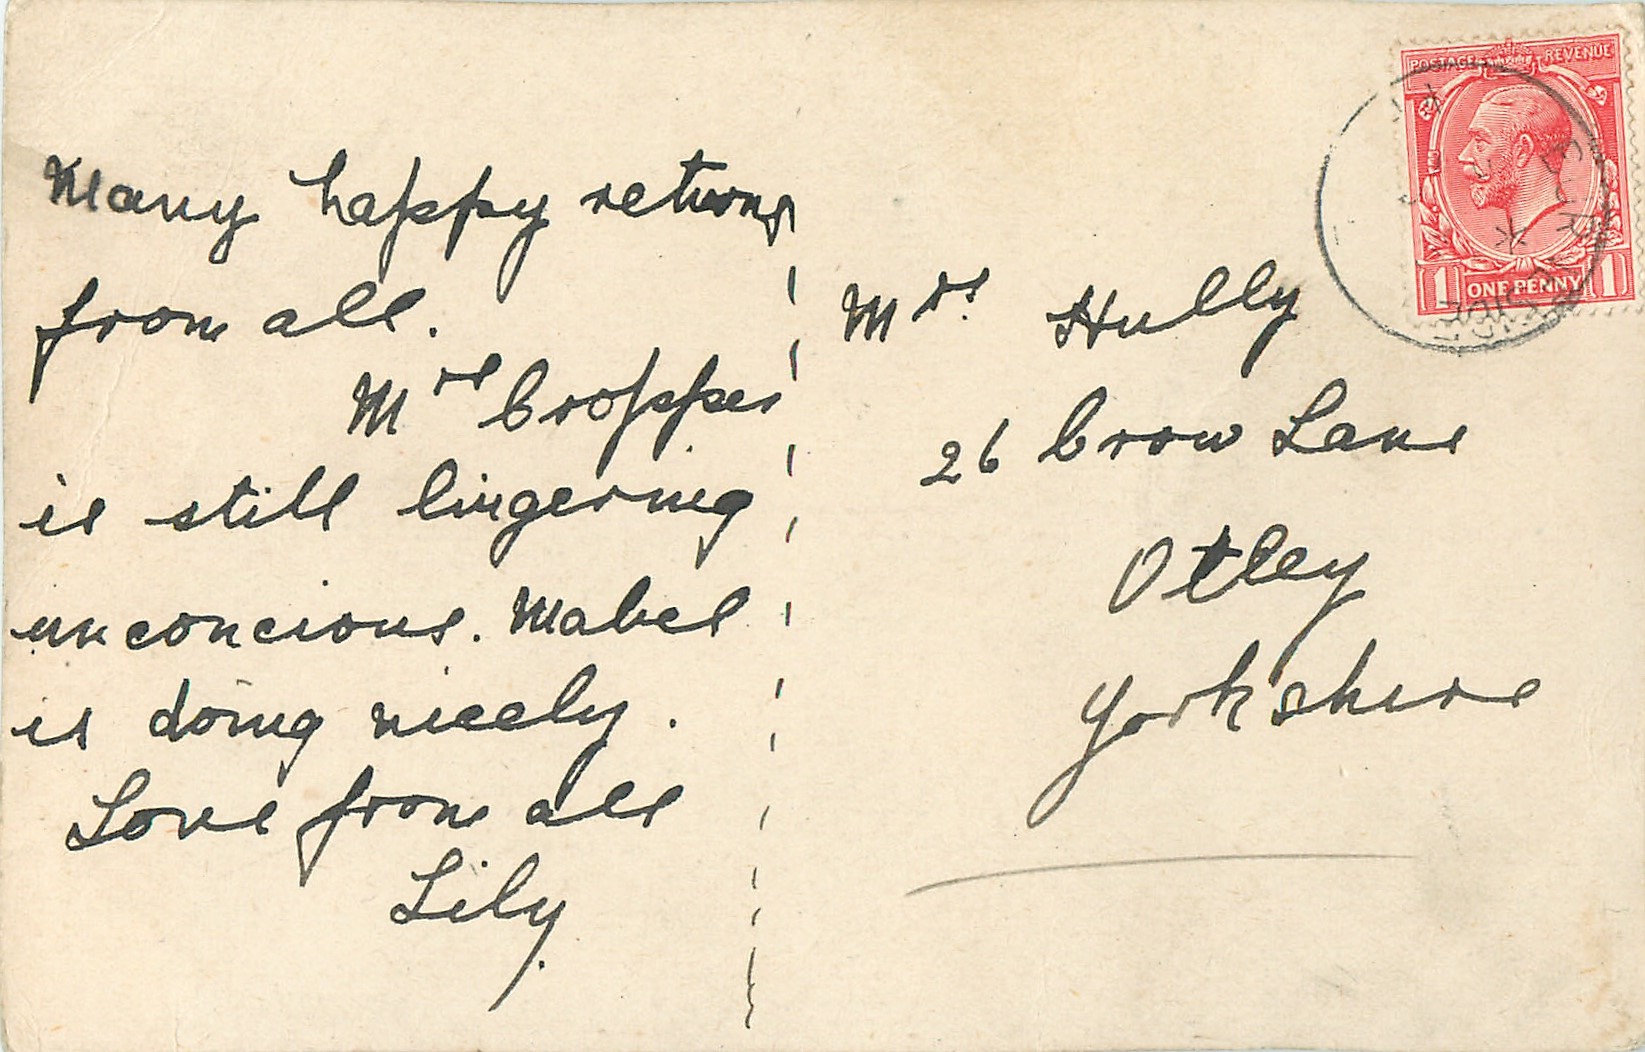 Many happy returns
from all.
Mrs Cropper
is still lingering
unconcious. Mabel
is doing nicely.
Love from all
Lily.
Mrs. Hully
26 Crow Lane
Otley
Yorkshire
POSTAGE REVENUE
1 ONE PENNY 1